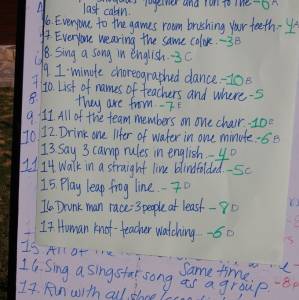 together and run to the -6A
last cabin.
6. Everyone to the games room brushing your teeth -4A
7 Everyone wearing the same color. -3B
8. Sing a song in english -3C
9 1-minute choreographed dance -10B
10. List of names of teachers and where -5
they are from. -7E
11 All of the team members on one chair. -10E
12. Drink one liter of water in one minute -6B
13 Say 3 camp rules in english -4D
14 Walk in a straight line blindfolded. -5C
15. Play leap frog line. -7D
16. Drunk man race=3people at least -8D
17 Human knot-teacher watching... -6D
15. All of the same time.
16. Sing a singstar song as a group.
17. Run with all